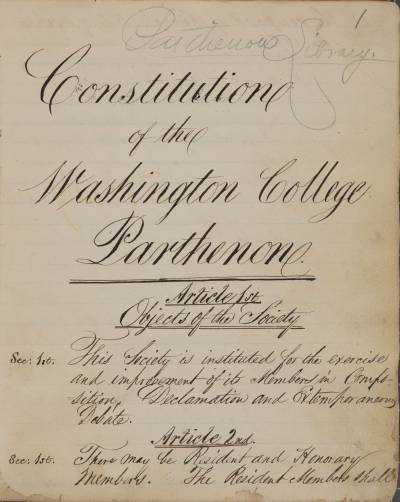 1
Parthenon Library.
Constitution
of the
Washington College
Parthenon.
Article 1st.
Objects of the Society
Sec. 1st. This Society is instituted for the exercise
and improvement of its Members in Compo-
sition, Declamation and Extemporaneous
Debate.
Article 2nd.
Sec. 1st. There may be Resident and Honorary
Members. The Resident Members shall